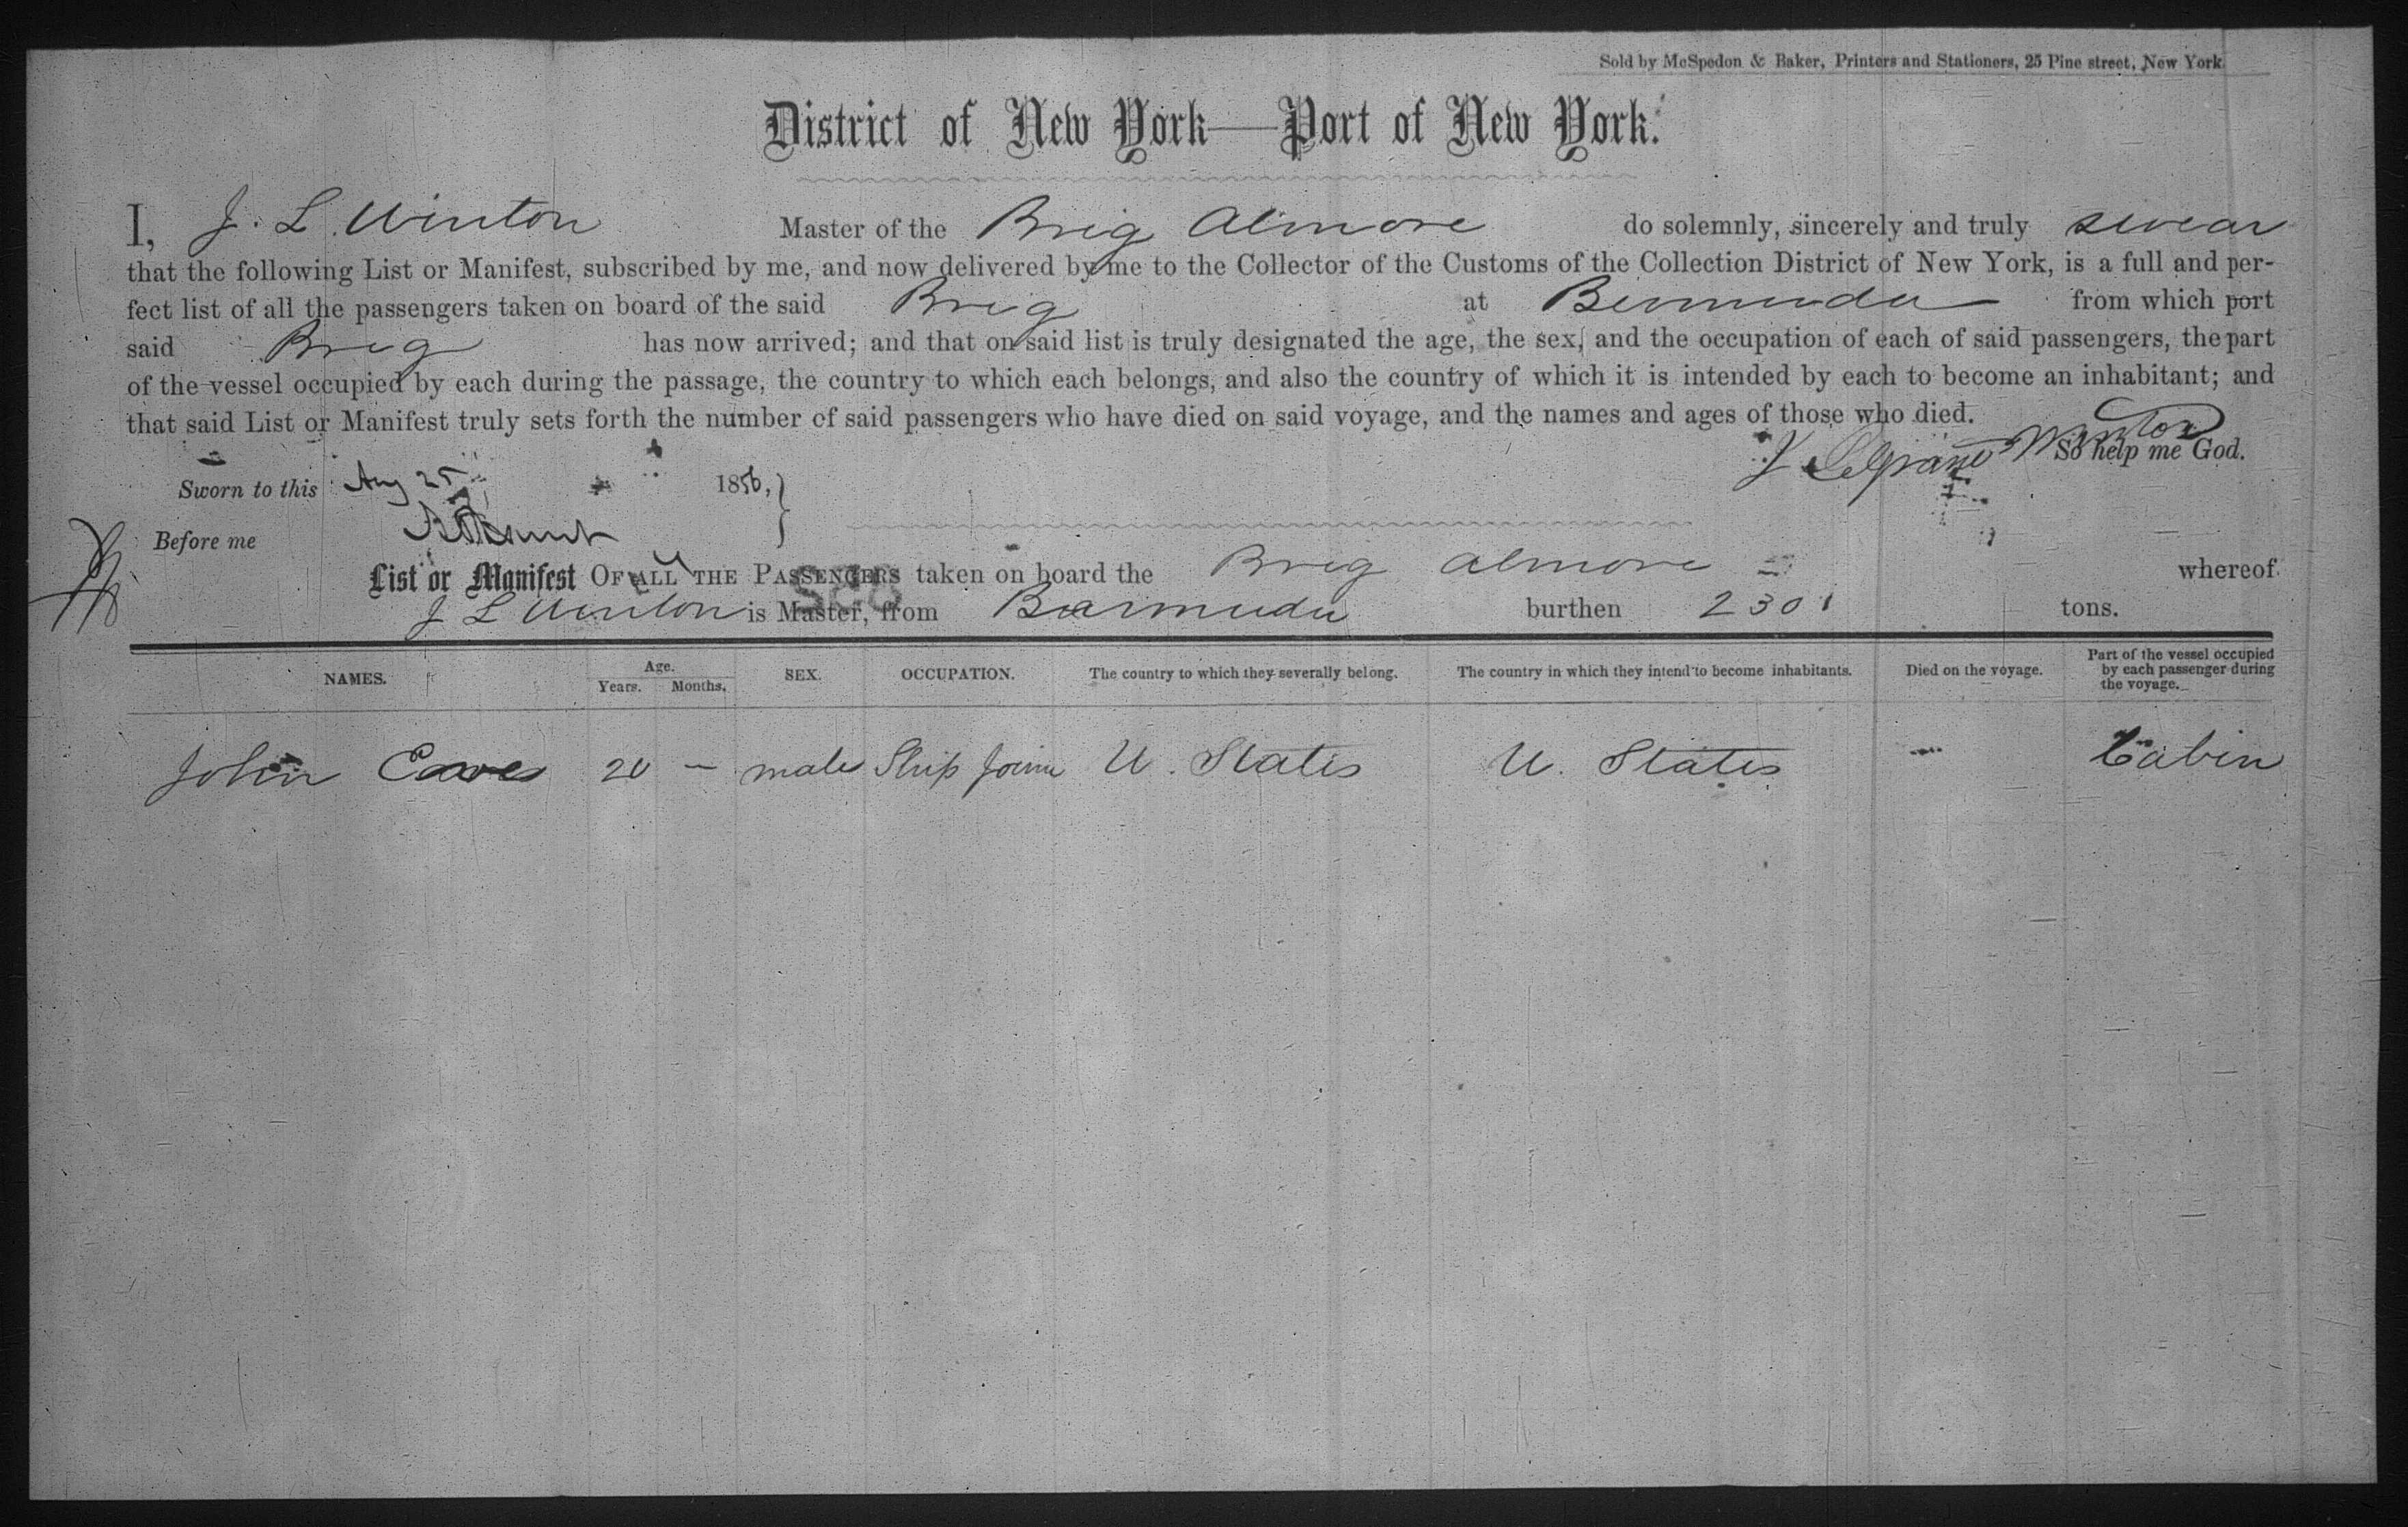 Sold by McSpedon & Baker, Printers and Stationers, 25 Pine street, New York.
District of New York—Port of New York.
I, J. L. Winton Master of the Brig Almore do solemnly, sincerely and truly swear
that the following List or Manifest, subscribed by me, and now delivered by me to the Collector of the Customs of the Collection District of New York, is a full and per-
fect list of all the passengers taken on board of the said Brig at Bermuda from which port
said Brig has now arrived; and that on said list is truly designated the age, the sex, and the occupation of each of said passengers, the part
of the vessel occupied by each during the passage, the country to which each belongs, and also the country of which it is intended by each to become an inhabitant; and
that said List or Manifest truly sets forth the number of said passengers who have died on said voyage, and the names and ages of those who died.
Winton So help me God.
Sworn to this Aug 25 1856,
Before me
List or Manifest OF ALL THE PASSENGERS taken on board the Brig Almore whereof
J L Winton is Master, from Barmuda burthen 230 tons.
NAMES. Age. Years. Months. SEX. OCCUPATION. The country to which they severally belong. The country in which they intend to become inhabitants. Died on the voyage. Part of the vessel occupied by each passenger during the voyage.
John Eaves 20 — male Ship Joiner U. States U. States — Cabin